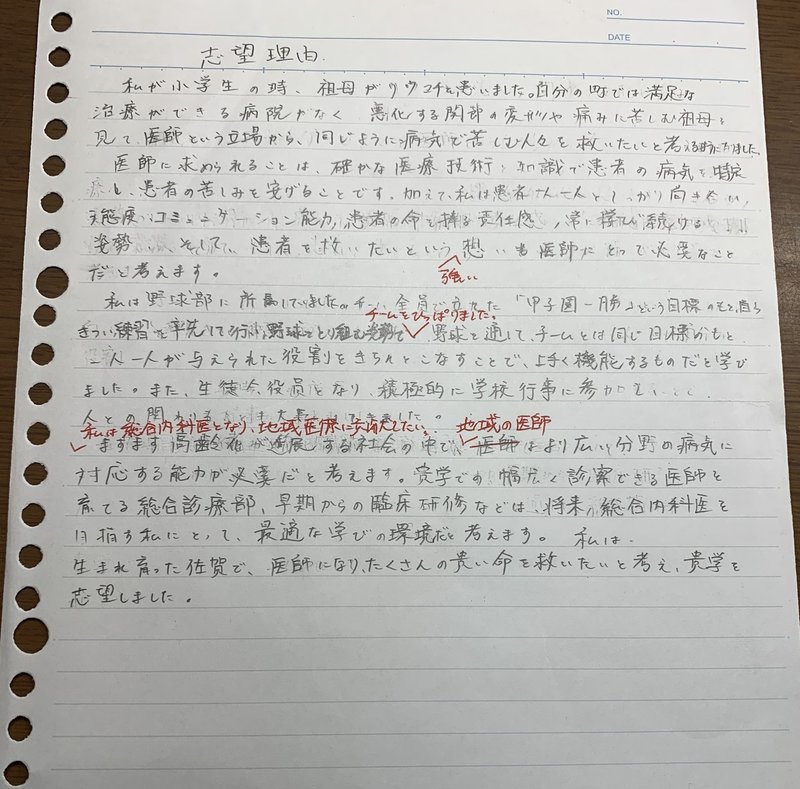 NO.
DATE
志望理由.
私が小学生の時、祖母がリウマチを患いました。自分の町では満足な
治療ができる病院がなく 悪化する関節の変形や痛みに苦しむ祖母を
見て、医師という立場から、同じように病気で苦しむ人々を救いたいと考えるようになりました。
医師に求められることは、確かな医療技術と知識で患者の病気を
し、患者の苦しみを安げることです。加えて、私は患者一人一人としっかり向き合
態度、コミュニケーション能力、患者の命を 責任感、常に学び続ける
姿勢 、そして、患者を救いたいという想いも医師にとって必要なこと
強い
だと考えます。
私は野球部に所属していました。チーム全員で 「甲子園一勝」という目標のもと、自ら
チームをひっぱりました。
きつい練習を率先して行い、 野球を通して、チームとは同じ目標のもと
一人一人が与えられた役割をきちんとこなすことで、上手く機能するものだと学び
ました。また、生徒会役員となり、積極的に学校行事に参加
人との関わり 大事
私は総合内科医となり、地域医療に貢献したい。 地域の医師
ますます高齢化が進展する社会の中で、医師はより広い分野の病気に
対応する能力が必要だと考えます。貴学での幅広く診察できる医師を
育てる総合診療部、早期からの臨床研修などは、将来、総合内科医を
目指す私にとって、最適な学びの環境だと考えます。 私は、
生まれ育った佐賀で、医師になり、たくさんの貴い命を救いたいと考え、貴学を
志望しました。